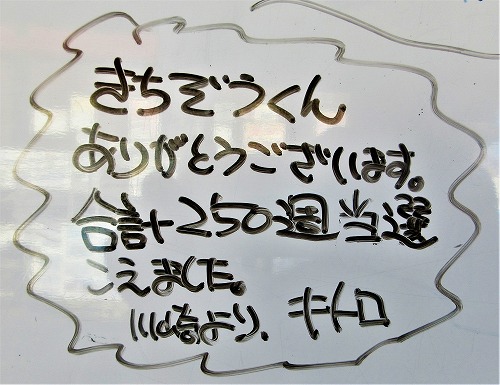 ざちぞうくん
ありがとうございます。
合計250週当選
こえました。
川崎より、キトロ